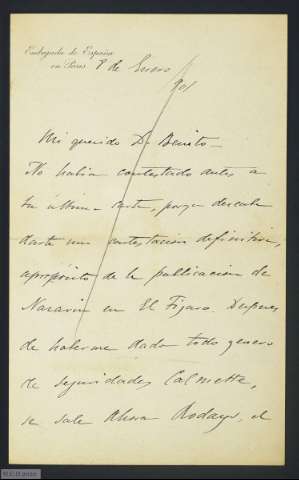 Embajada de España
en París. 8 de Enero
/901
Mi querido Dn Benito =
No había contestado antes a
tu última carta, porque deseaba
darte una contestación definitiva,
apropósito de la publicación de
Nazarin en El Fígaro. Despues
de haberme dado todo genero
de seguridades Calmette,
se sale ahora Rodays, el